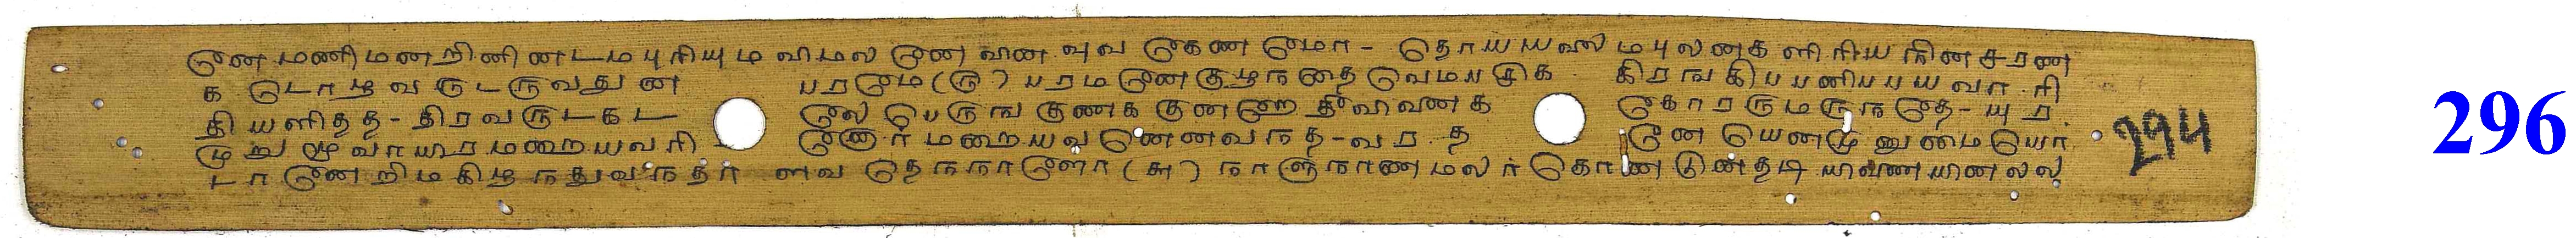 னெமணிமனறினினடமபுரியுமவிமலனெவானவுவகெணமொ-தொயயவிமபுலனகளிரியநினசரண
கடொழுவருடருவதுன பரமெ(ரு)பரமனெகுழநதைவெமபசிக கிரஙகிபபணிபபயவாரி
தியளிதத-திரவருடகட லெபெருஙகுணககுனறெதிவவிணக கொரருமருநதெ-யுர
முறுமூவாயிரமறையவரி ணொர்மறையவனெனவநத-வரத னெயெனமுனுமையொ
டானெறிமகிழநதுவநதர் ளவதெநநாளொ(சு)நாளுநாணமலர்கொணடுனதடியிணையினலல
294
296